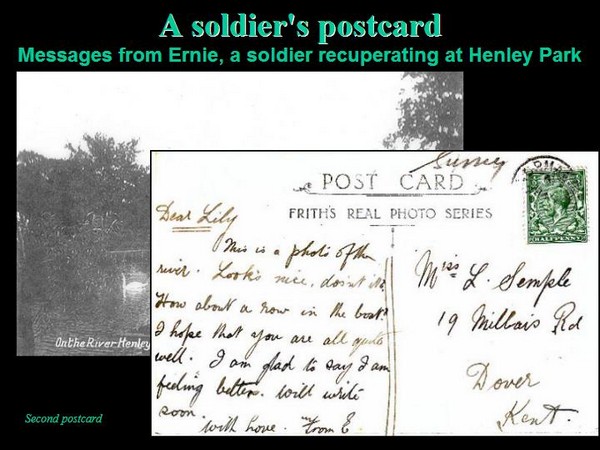 A soldier's postcard
Messages from Ernie, a soldier recuperating at Henley Park
On the River Henley
Second postcard
Surrey
POST CARD
FRITH'S REAL PHOTO SERIES
HALFPENNY
Dear Lily
This is a photo of the
river. Looks nice, dosn't it?
How about a row in the boat?
I hope that you are all quite
well. I am glad to say I am
feeling better. will write
soon.
with Love. from E.
Miss L. Semple
19 Millais Rd
Dover
Kent.